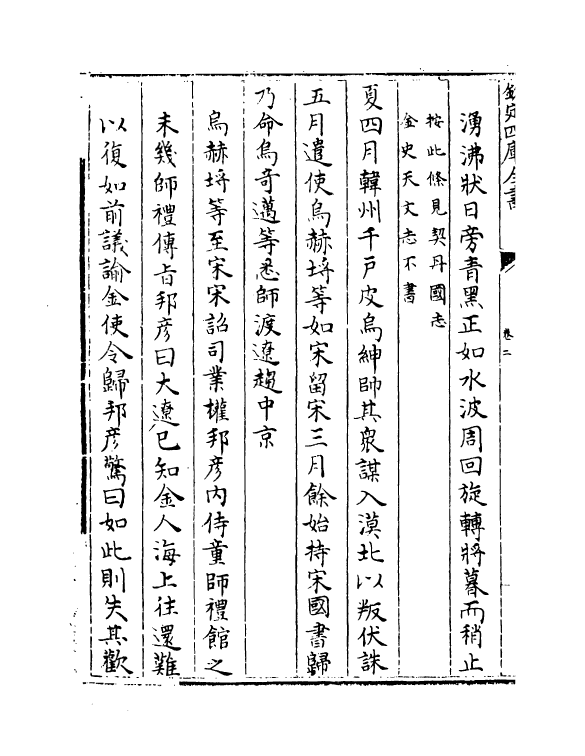 欽定四庫全書
卷二
湧沸狀日旁青黑正如水波周回旋轉將暮而稍止
按此條見契丹國志
金史天文志不書
夏四月韓州千戶皮烏紳帥其衆謀入漠北以叛伏誅
五月遣使烏赫埒等如宋留宋三月餘始持宋國書歸
乃命烏奇邁等悉師渡遼趨中京
烏赫埒等至宋宋詔司業權邦彦内侍童師禮館之
未幾師禮傳旨邦彦曰大遼已知金人海上往還難
以復如前議諭金使令歸邦彦驚曰如此則失其歡